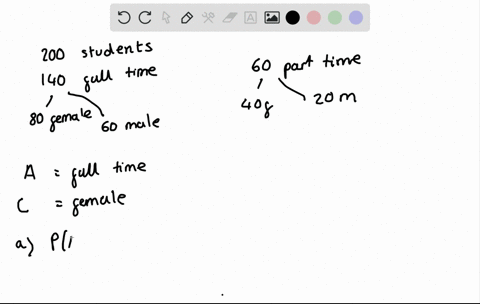 200 students
140 full time
80 female
60 male
60 part time
40f
20 m
A = full time
C = female
a) P(